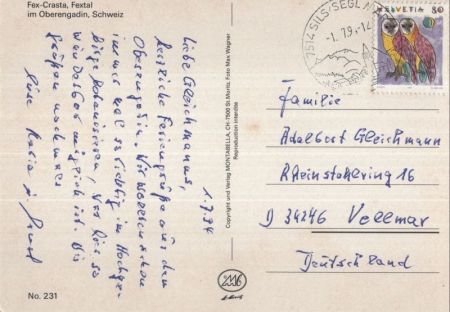 Fex-Crasta, Fextal
im Oberengadin, Schweiz
1.7.94
Liebe Gleichmanns,
herzliche Feriengrüße aus dem
Oberengadin. Wir
immer mal so richtig im Hochge-
was hier so
wunderbar möglich ist. Bis
nochmals
Eure Karin u.
No. 231
Copyright und Verlag MONTABELLA, CH-7500 St. Moritz, Foto Max Wagner
Reproduction interdite
7514 SILS/SEGL
-1.7.94-12
HELVETIA 80
Familie
Adalbert Gleichmann
Rheinstahlring 16
D 34246 Vellmar
Deutschland